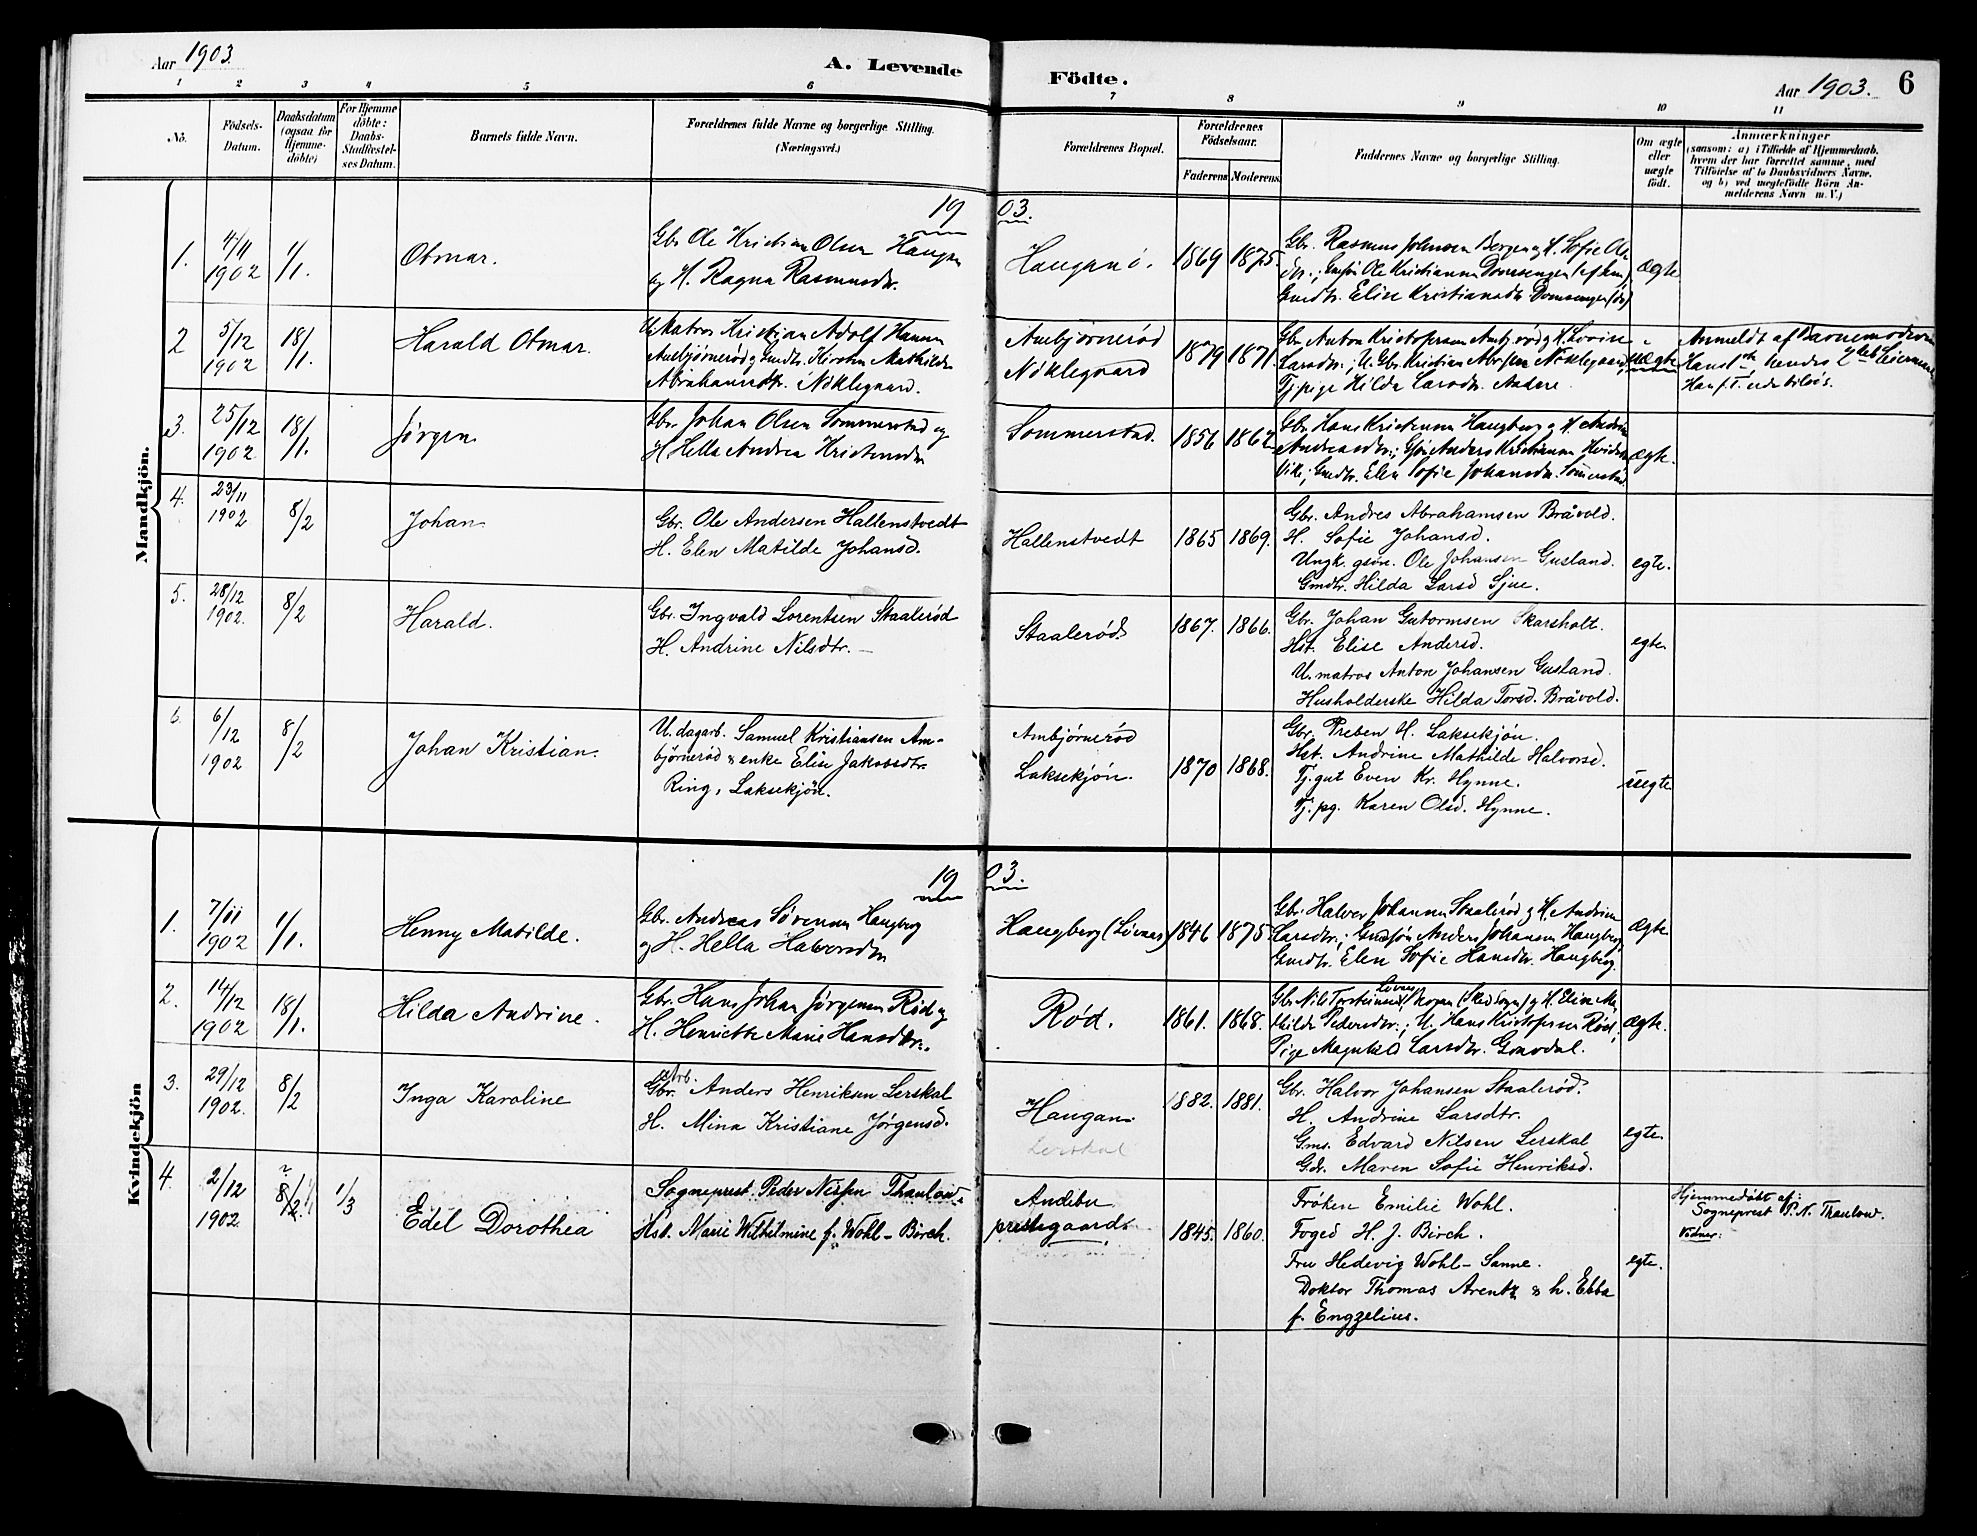 Aar 1903.
A. Levende Födte.
Aar 1903. 6
1 2 3 4 5 6 7 8 9 10 11
No.
Födsels-
Datum.
Daabsdatum
(ogsaa for
Hjemme-
döbte)
For Hjemme
döbte:
Daabs-
Stadfæstel-
ses Datum.
Barnets fulde Navn.
Forældrenes fulde Navne og borgerlige Stilling.
(Næringsvei.)
Forældrenes Bopæl.
Forældrenes
Födselsaar.
Faderens Moderens
Faddernes Navne og borgerlige Stilling.
Om ægte
eller
uægte
födt.
Anmærkninger
(saasom: a) i Tilfælde af Hjemmedaab.
hvem der har forrettet samme, med
Tilföielse af to Daabsvidners Navne.
og b) ved uægtefödte Börn An-
melderens Navn m. V.)
Mandkjön.
1903.
1.
4/11
1902
1/1.
Otmar.
Gbr. Ole Kristian Olsen Haugan
og H. Ragna Rasmusdtr.
Haugan ö.
1869 1875.
Gbr. Rasmus Johnsen Bergen og H. Sofie Ols
dtr.; Gmsön Ole Kristiansen
Gmdtr. Elise Kristiansdtr.
Ægte
2
5/12
1902
18/1.
Harald Otmar.
U. Matros Kristian Adolf Hansen
Ambjørnerød og Gmdtr. Kirsten Mathilde
Abrahamsdtr. Nöklegaard.
Ambjørnerød
Nöklegaard
1879 1871.
Gbr. Anton Kristofersen Ambj.rød og H. Lovise
Larsdtr.; U. Gbr. Kristian Abrahamsen Nöklegaard,
Tj.pige Hilda Larsdtr.
uægte
Anmeldt af Barnemoderen
Hans 1ste, hendes 2det Leiermaal
3.
25/12
1902
18/1.
Jørgen
Gbr. Johan Olsen Sommerstad og
H. Hella Andrea Kristensdtr
Sommerstad.
1856 1862.
Gbr. Hans Kristensen Haugberg og H. Andrine
Andreasdtr.; Gsön Anders Kristiansen
Gmdtr. Elen Sofie Johansdtr. Sommerstad
Ægte.
4.
23/11
1902
8/2
Johan
Gbr. Ole Andersen Hallenstvedt
H. Elen Matilde Johansd.
Hallenstvedt
1865 1869.
Gbr. Andres Abrahamsen Bråvold.
H. Sofie Johansd.
Ungk. gsön. Ole Johansen Gusland.
Gmdtr. Hilda Larsd Sjue.
egte.
5.
28/12
1902.
8/2
Harald.
Gbr. Ingvald Lorentsen Staalerød
H. Andrine Nilsdtr. —
Staalerød
1867. 1866.
Gbr. Johan Gutormsen Skarsholt.
Hst. Elise Andersd.
U. matros Anton Johansen Gusland.
Husholderske Hilda Torsd. Bråvold.
egte.
6.
6/12
1902
8/2
Johan Kristian.
U. dagarb. Samuel Kristiansen Am-
bjørnerød & enke Elise Jakobsdtr.
Ring, Laksekjön.
Ambjørnerød
Laksekjön.
1870 1868.
Gbr. Preben H. Laksekjön.
Hst. Andrine Mathilde Halvorsd.
Tj. gut Even Kr. Hynne.
Tj. pg. Karen Olsd. Hynne.
uegte
Kvindekjön
1903.
1.
7/11
1902
1/1.
Henny Matilde.
Gbr. Andreas Sørensen Haugberg
og H. Hella Halvorsdtr
Haugberg
1846 1875
Gbr. Halvor Johansen Staalerød og H. Andrine
Larsdtr.; Gmsön Anders Johansen Haugberg
Gmdtr. Elen Sofie Hansdtr. Haugberg.
Ægte
2.
14/12
1902
18/1.
Hilda Andrine.
Gbr. Hans Johan Jørgensen Rød og
H. Henriette Marie Hansdtr.
Rød.
1861. 1868.
Gbr. Nils Torsteinsen Skopen og H. Elise Ma-
thilde Pedersdtr.; U. Hans Kristofersen Rød,
Pige Magnhild Larsdtr.
Ægte.
3.
29/12
1902.
8/2
Inga Karoline
Gbr. arb. Anders Henriksen Lerskal
H. Mina Kristiane Jørgensd.
Haugan
Lerskal
1882. 1881.
Gbr. Halvor Johansen Staalerød.
H. Andrine Larsdtr.
Gms. Edvard Nilsen Lerskal
Gdr. Maren Sofie Henriksd.
egte.
4.
2/12
1902.
8/2
1/3
Edel Dorothea
Sogneprest Peder Nissen Thaulow
Hst. Marie Wilhelmine f. Wohl - Birch.
Andebu
prestegaard
1845. 1860.
Frøken Emilie Wohl.
Foged H. J. Birch.
Fru Hedevig Wohl - Sanne.
Doktor Thomas Arentz & h. Ebba
f. Engzelius.
egte.
Hjemmedöbt af:
Sogneprest P. N. Thaulow.
Vidner: